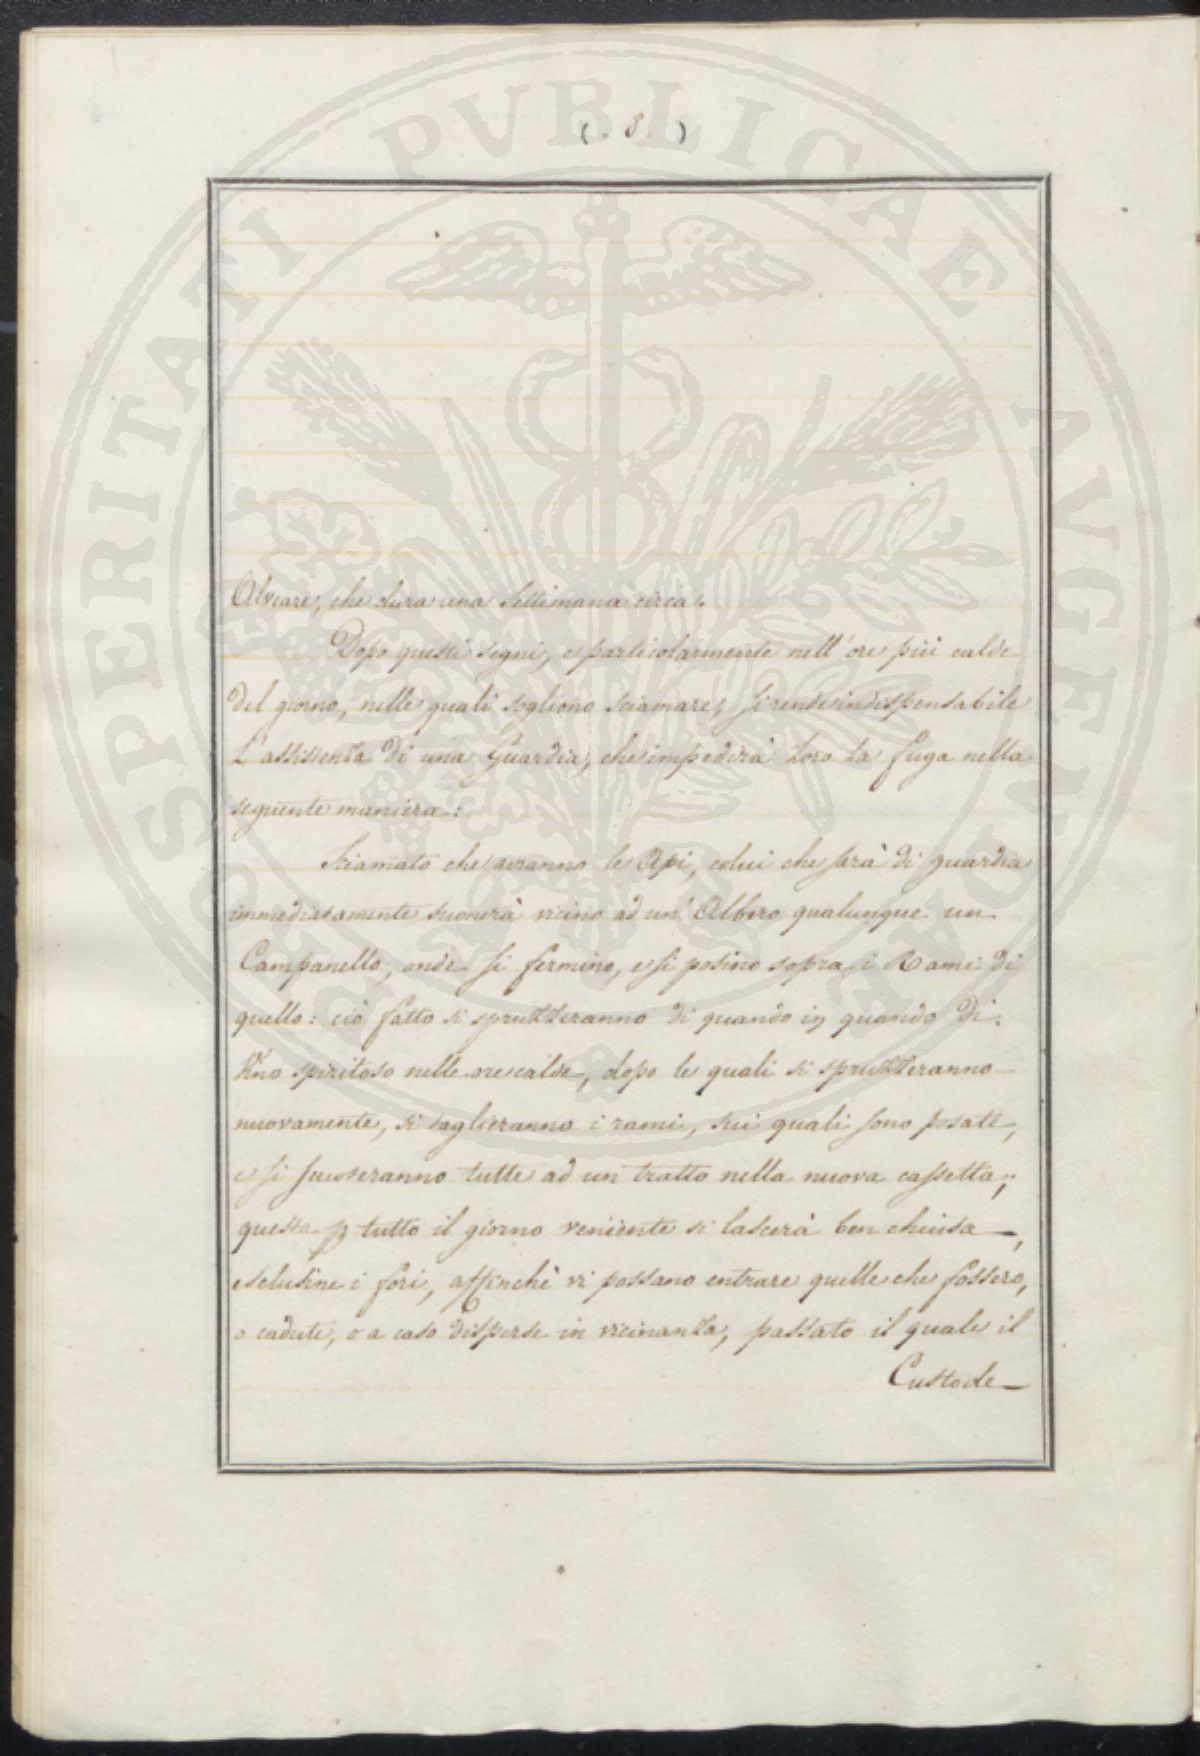 ( 8 )
Alveare, che dura una Settimana circa.
Dopo questi segni, e particolarmente nell'ore più calde
del giorno, nelle quali sogliono sciamare, si rende indispensabile
l'assistenza di una Guardia, che impedirà loro la fuga nella
seguente maniera:
Sciamato che avranno le Api, colui che sarà di guardia
immediatamente suonerà vicino ad un' Albero qualunque un
Campanello, onde si fermino, e si posino sopra i Rami di
quello: ciò fatto si spruzzeranno di quando in quando di
Vino spiritoso nelle ore calde, dopo le quali si spruzzeranno
nuovamente, si taglieranno i rami, sui quali sono posate,
e si scuoteranno tutte ad un tratto nella nuova cassetta;
questa p tutto il giorno veniente si lascerà ben chiusa,
esclusine i fori, affinchè vi possano entrare quelle che fossero,
o cadute, o a caso disperse in vicinanza, passato il quale il
Custode
PROSPERITATI PUBLICAE AUGENDAE